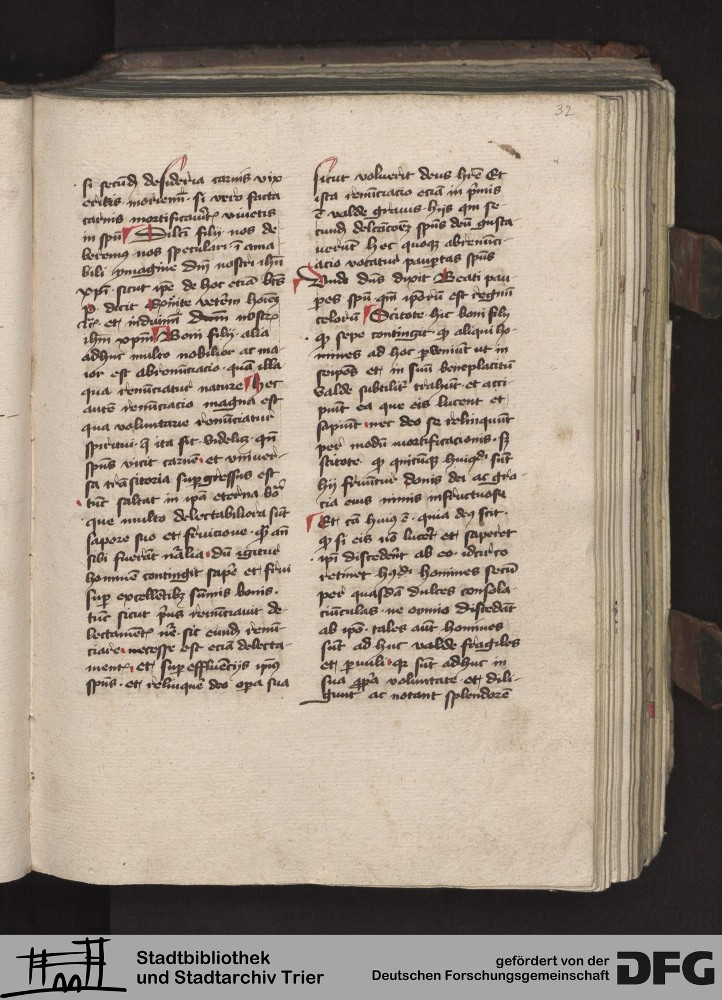 32
si secund desideria carnis vix
eritis moriem̄. si vero facta
carnis mortificauit͛ viuetis
in spū Dilcī filij nos de
beremus nos speculari ī ama
bili ymagine dnī nostri ihū
xpī. sicut ipē de hoc etiā btūs
p dicit Exuite veterē hoīem
et induimī dnm nostrū
ihm xpm Boni filij alia
adhuc multo nobilior ac ma-
ior est abrenūciacio. quā illa
qua renūciatur nature Hec
autē renūciacio magna est
qua voluntarie renūciatur
spiritui. q̄ ita fit. videlicꝫ qn̄
spūs vicit carnē. et vniuer-
sa trāsitoria supgressus est
tūc saltat in ipā eterna bōa
que multo delectabiliora sūt
sapore suo et fruicione. qͣ an̄
sibi fuerāt nālia. dū igitur
hominē contingit sapē et frui
sup excellētibꝫ sūmis bonis.
tūc sicut pus renūciauit de-
lectament nē. sic eciā renū-
ciare. necesse est eciā delecta-
ment. et sup effluencijs ipius
spūs. et relinquē deo opa sua
sicut voluerit deus hrē Et
ista renūciacio eciā in pmis
ē valde grauis. hijs qui se
cund delectacoēs spūs deū gusta-
uerūt hec quoqꝫ abrenūci-
acio vocatur paupertas spūs
Unde dūs dixit Beati pau
pes spū. qm̄ ipōrū est regnū
celorū Scitote. hic boni filij
qꝫ sepe contingit. qꝫ aliqui ho-
mines ad hoc pueniūt ut in
seipos et in suū beneplacitū
valde subtilit͛ trahūt et acci
piūt ea que eis lucent et
sapiūt. nec deo se relinquūt
per modū mortificacionis. Sꝫ
scitote. qꝫ quicūqꝫ huiqdi sūt
hij fruūtur donis dei ac gra-
cia eius nimis infructuose
Et cā huius ē. quia deus scit.
qꝫ si eis nō lucet et saperet
ipī discederēt ab eo. idcirco
retinet hꝫdi homines secū
per quasdā dulces consola
ciūculas. ne omnio discedāt
ab ipō. tales aūt homines
sūt ad huc valde fragiles
et puuli. qꝛ sūt adhuc in
sua ppa voluntate. et dili-
gunt ac notant splendorē
Stadtbibliothek
und Stadtarchiv Trier
gefördert von der
Deutschen Forschungsgemeinschaft
DFG